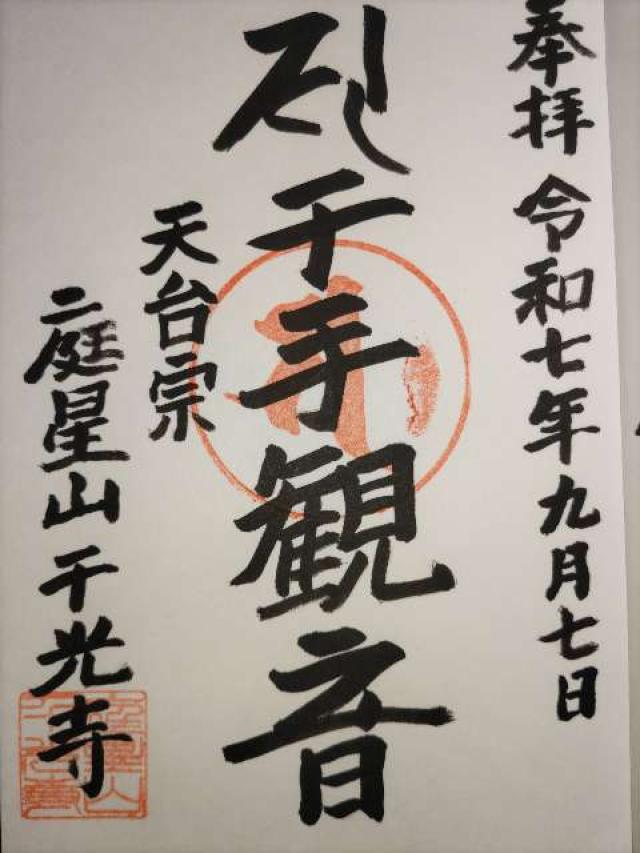 奉拝 令和七年九月七日
千手観音
天台宗
庭星山千光寺